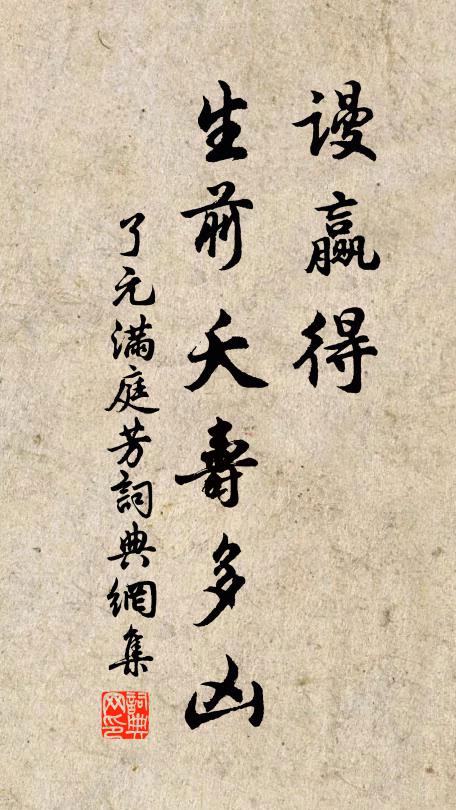 謾贏得
生前夭壽多凶
了元滿庭芳詞典網集
詞典
网印